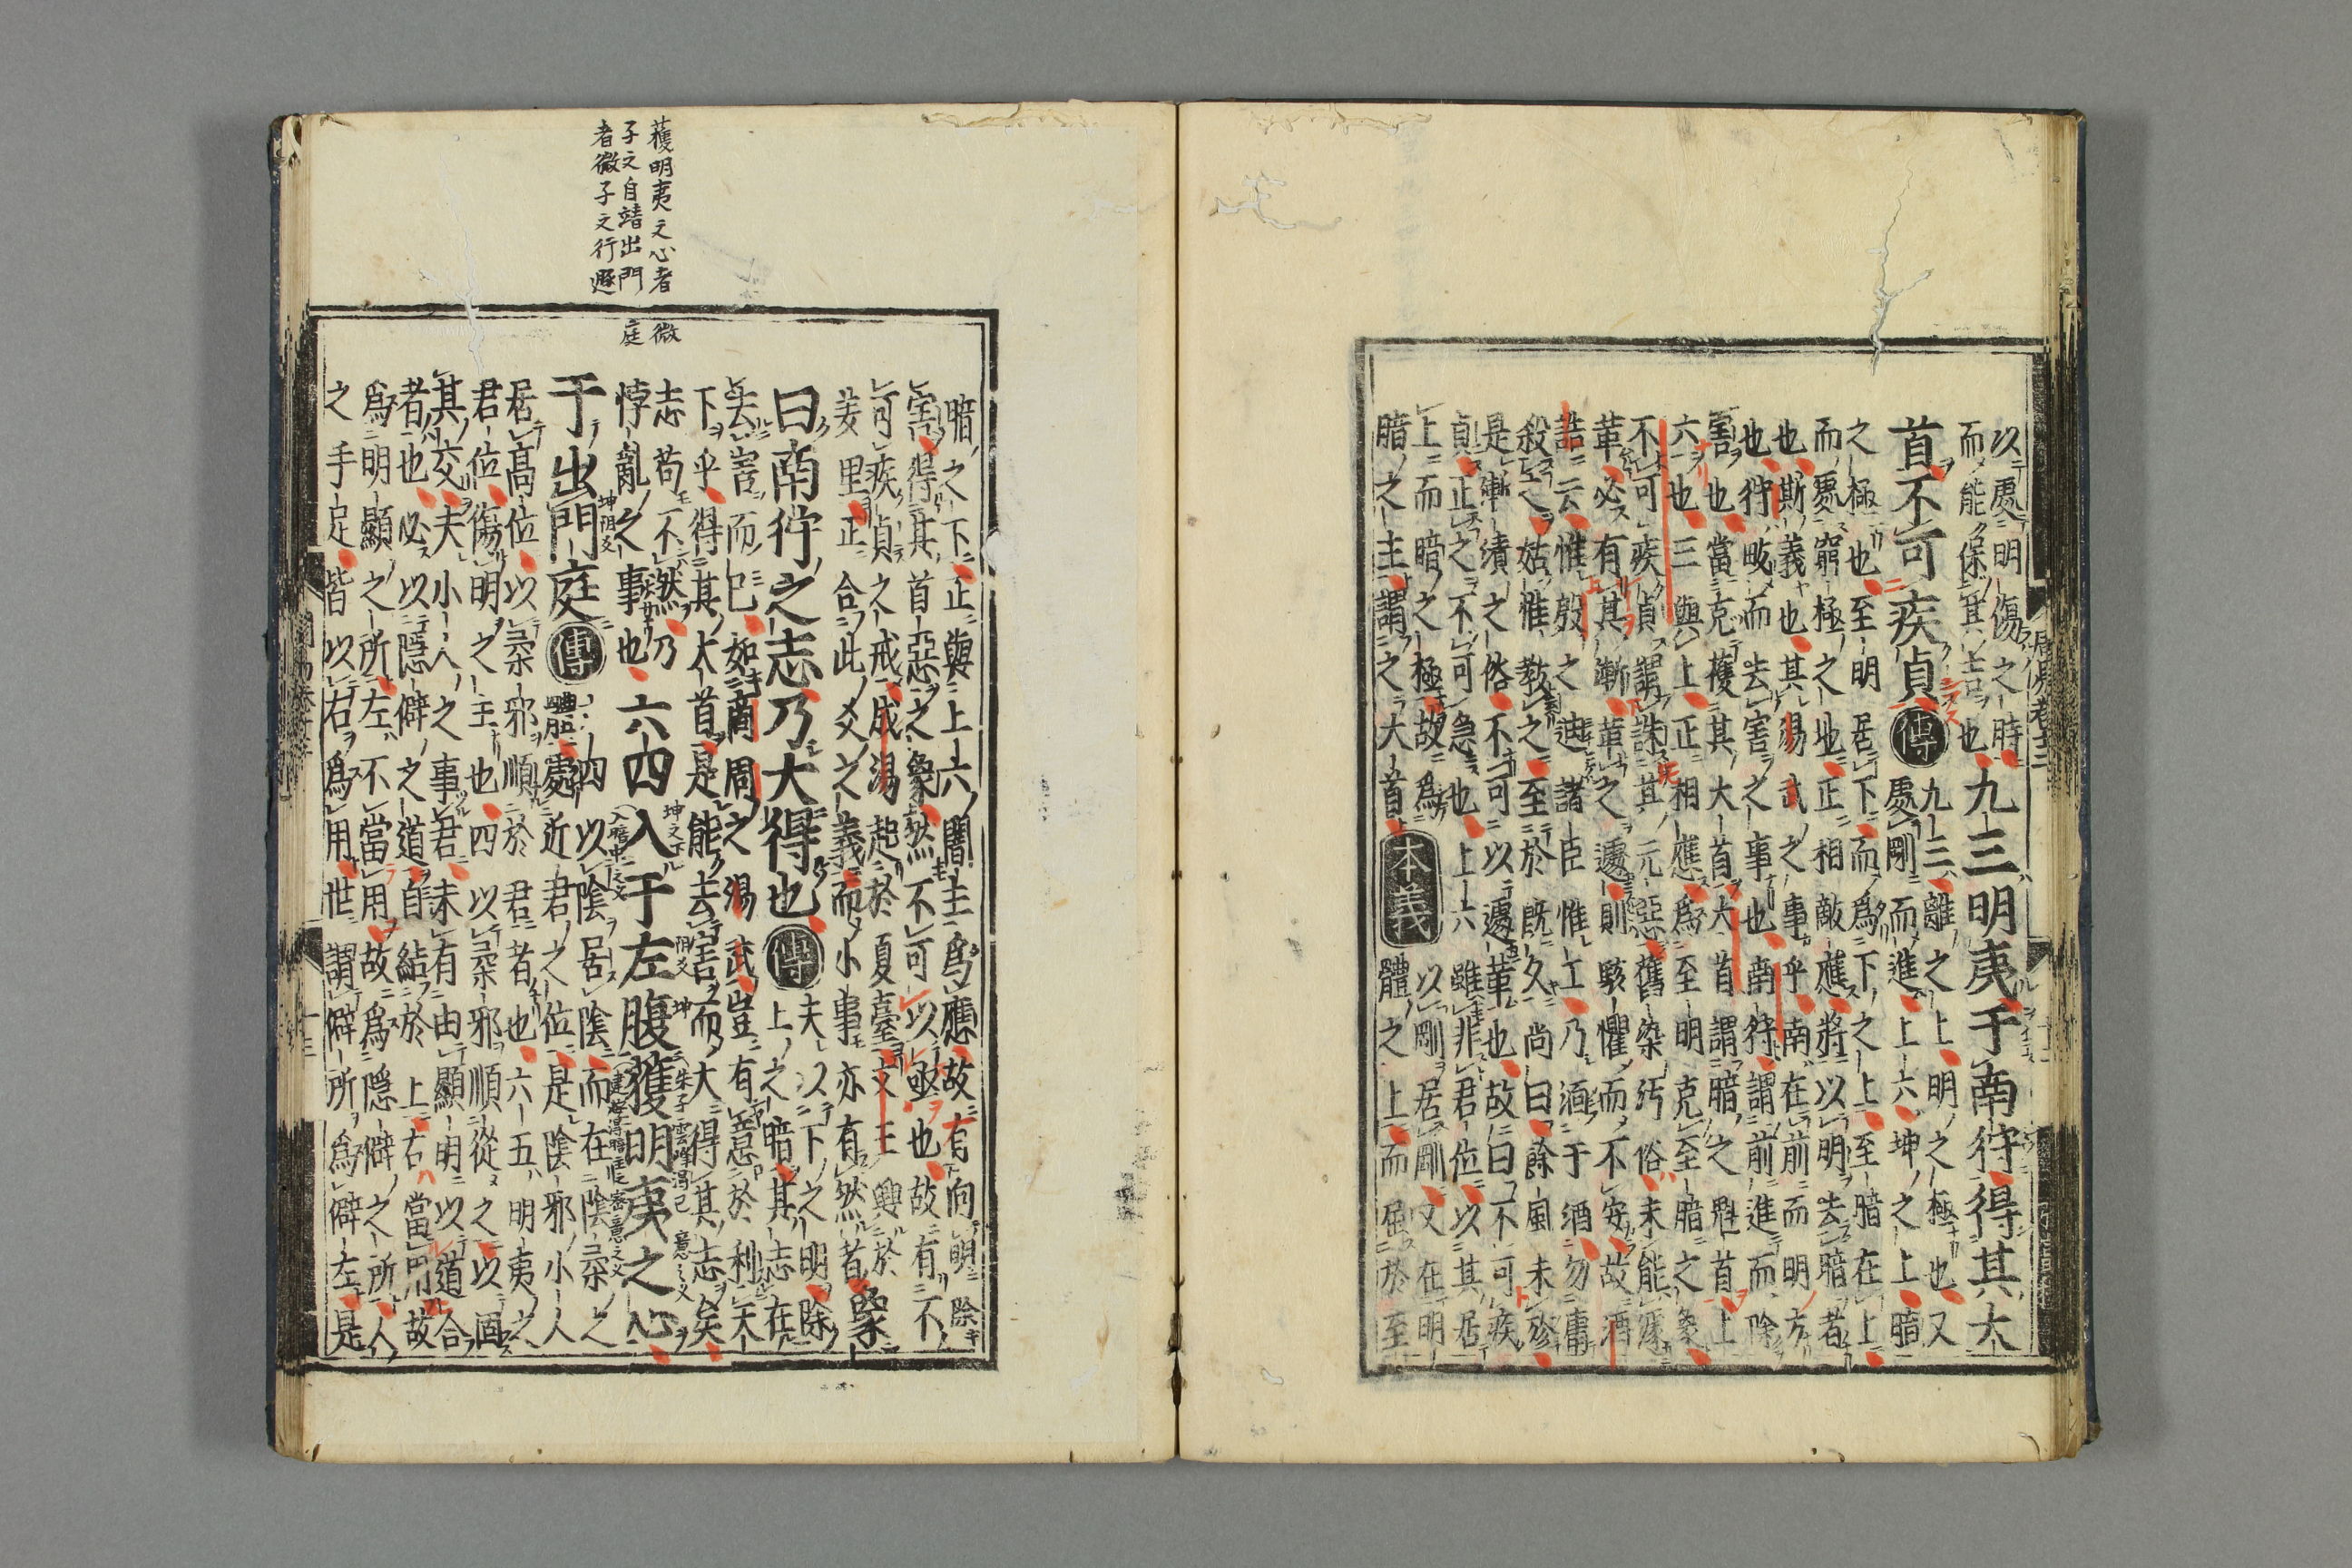 以處明傷之時
而能保其吉也
九三明夷于南狩得其大
首不可疾貞
傳
九三離之上明之極也又
處剛而進上六坤之上暗
之極也至明居下而爲下之上至暗在上
而處窮極之地正相敵應將以明去暗者
也斯義也其湯武之事乎南在前而明方
也狩畋而去害之事也南狩謂前進而除
害也當克獲其大首大首謂暗之魁首上
六也三與上正相應爲至明克至暗之象
不可疾貞謂誅其元惡舊染汚俗未能遽
革必有其漸革之遽則駭懼而不安故酒
誥云惟殷之迪諸臣惟工乃湎于酒勿庸
殺之姑惟敎之至於既久尚曰餘風未殄
是漸漬之俗不可以遽革也故曰不可疾
貞正之不可急也上六雖非君位以其居
上而暗之極故爲
暗之主謂之大首
本義
以剛居剛又在明
體之上而屈於至
獲明夷之心者微
子之自靖出門庭
者微子之行遯
暗之下正與上六闇主爲應故有向明除
害得其首惡之象然不可以亟也故有不
可疾貞之戒成湯起於夏臺文王興於
羑里正合此爻之義而小事亦有然者
象
曰南狩之志乃大得也
傳
夫以下之明除
上之暗其志在
去害而已如商周之湯武豈有意於利天
下乎得其大首是能去害而大得其志矣
志苟不然乃
悖亂之事也
六四入于左腹獲明夷之心
于出門庭
傳
四以陰居陰而在陰柔之
體處近君之位是陰邪小人
居高位以柔邪順於君者也六五明夷之
君位傷明之主也四以柔邪順從之以固
其交夫小人之事君未有由顯明以道合
者也必以隱僻之道自結於上右當用故
爲明顯之所左不當用故爲隱僻之所人
之手足皆以右爲用世謂僻所爲僻左是